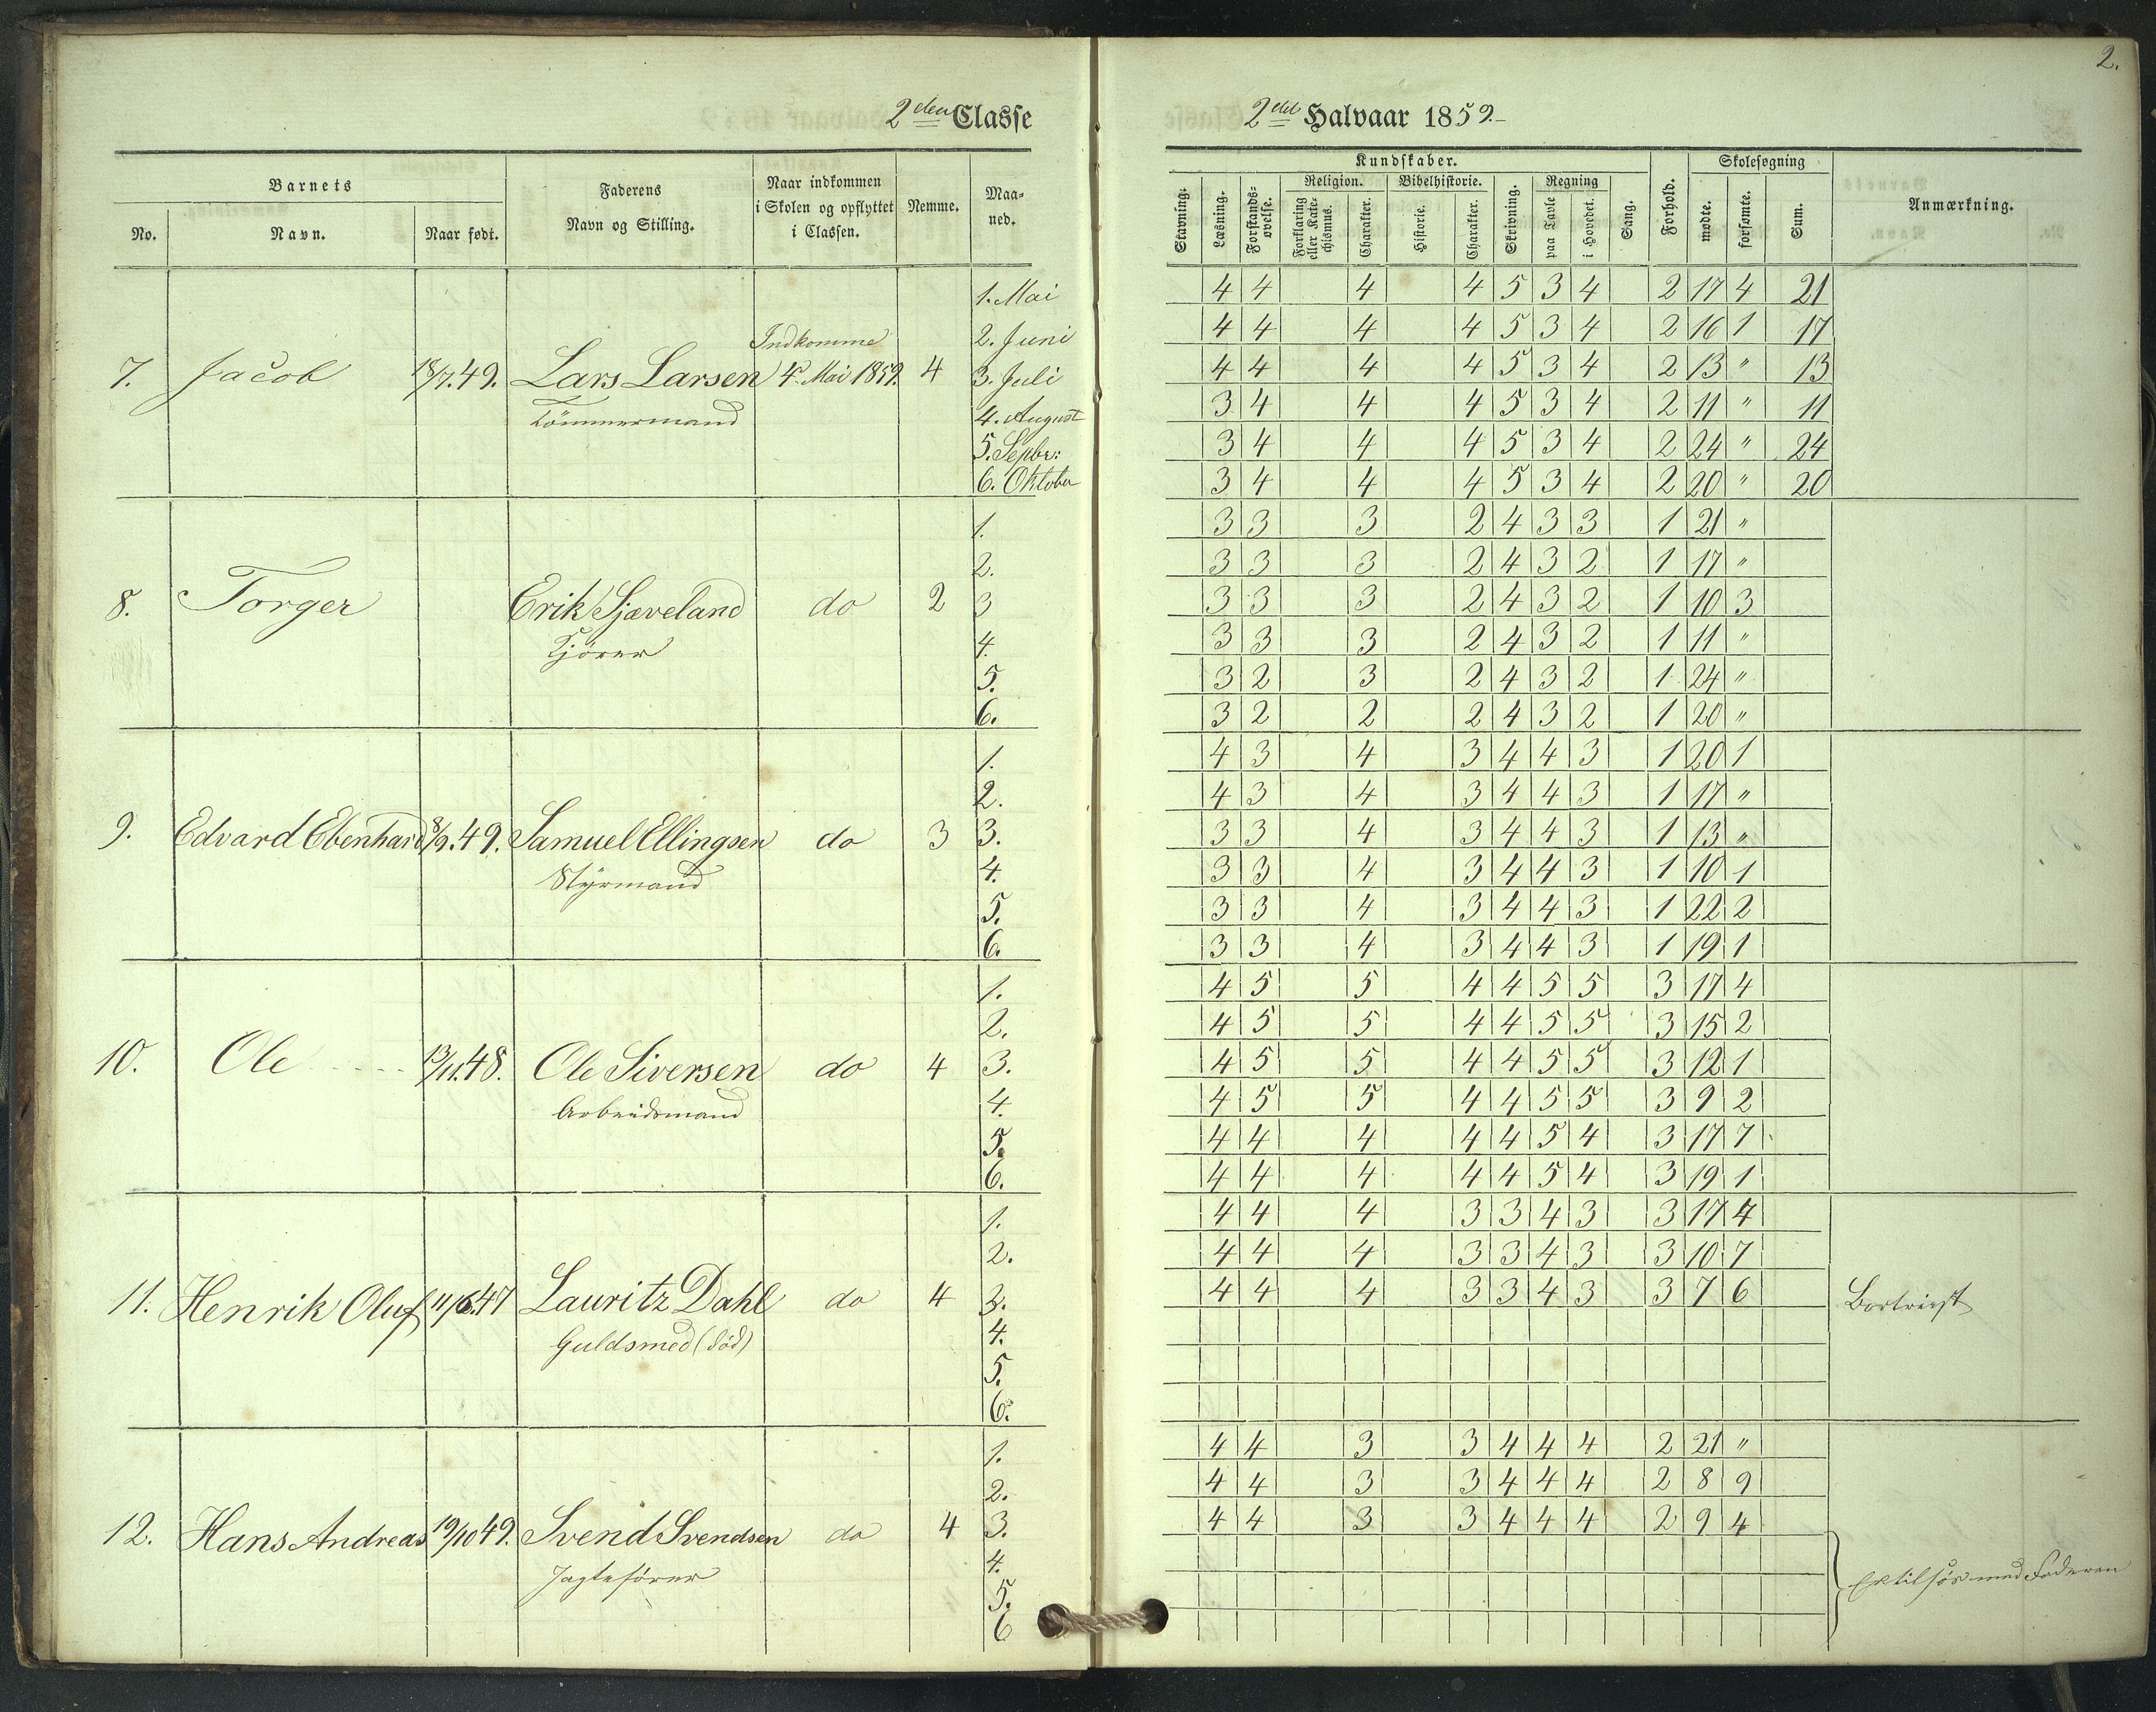 2.
2den Classe
2det Halvaar 1859.
Barnets
No.
Navn.
Naar født.
Faderens
Navn og Stilling.
Naar indkommen
i Skolen og opflyttet
i Classen.
Nemme.
Maa-
ned.
Kundskaber.
Stavning.
Læsning.
Forstands-
øvelse.
Religion.
Forklaring
eller Kate-
chismus.
Charakter.
Bibelhistorie.
Historie.
Charakter.
Skrivning.
Regning
paa Tavle
i Hovedet.
Sang.
Forhold.
Skolesøgning
mødte.
forsømte.
Sum.
Anmærkning.
7. Jacob 18/7.49. Lars Larsen Indkomme
4. Mai 1859. 4
Tømmermand
1. Mai 4 4 4 4 5 3 4 2 17 4 21
2. Juni 4 4 4 4 5 3 4 2 16 1 17
3. Juli 4 4 4 4 5 3 4 2 13 " 13
4. August 3 4 4 4 5 3 4 2 11 " 11
5. Sepbr: 3 4 4 4 5 3 4 2 24 " 24
6. Oktober 3 4 4 4 5 3 4 2 20 " 20
8. Torger Erik Sjæveland do 2
Kjører
1. 3 3 3 2 4 3 3 1 21 "
2. 3 3 3 2 4 3 2 1 17 "
3 3 3 3 2 4 3 2 1 10 3
4. 3 3 3 2 4 3 2 1 11 "
5. 3 2 3 2 4 3 2 1 24 "
6. 3 2 2 2 4 3 2 1 20 "
9. Edvard Ebenhard 8/9.49. Samuel Ellingsen do 3
Styrmand
1. 4 3 4 3 4 4 3 1 20 1
2. 4 3 4 3 4 4 3 1 17 "
3. 3 3 4 3 4 4 3 1 13 "
4. 3 3 4 3 4 4 3 1 10 1
5. 3 3 4 3 4 4 3 1 22 2
6. 3 3 4 3 4 4 3 1 19 1
10. Ole 13/11.48. Ole Siversen do 4
Arbeidsmand
1. 4 5 5 4 4 5 5 3 17 4
2. 4 5 5 4 4 5 5 3 15 2
3. 4 5 5 4 4 5 5 3 12 1
4. 4 5 5 4 4 5 5 3 9 2
5. 4 4 4 4 4 5 4 3 17 7
6. 4 4 4 4 4 5 4 3 19 1
11. Henrik Oluf 11/6.47 Lauritz Dahl do 4
Guldsmed (død)
1. 4 4 4 3 3 4 3 3 17 4
2. 4 4 4 3 3 4 3 3 10 7
3. 4 4 4 3 3 4 3 3 7 6 Bortreist
4.
5.
6.
12. Hans Andreas 19/10 49. Svend Svendsen do 4
Jagtefører
1. 4 4 3 3 4 4 4 2 21 "
2. 4 4 3 3 4 4 4 2 8 9
3. 4 4 3 3 4 4 4 2 9 4
4.
5. Er tilsøs med Faderen
6